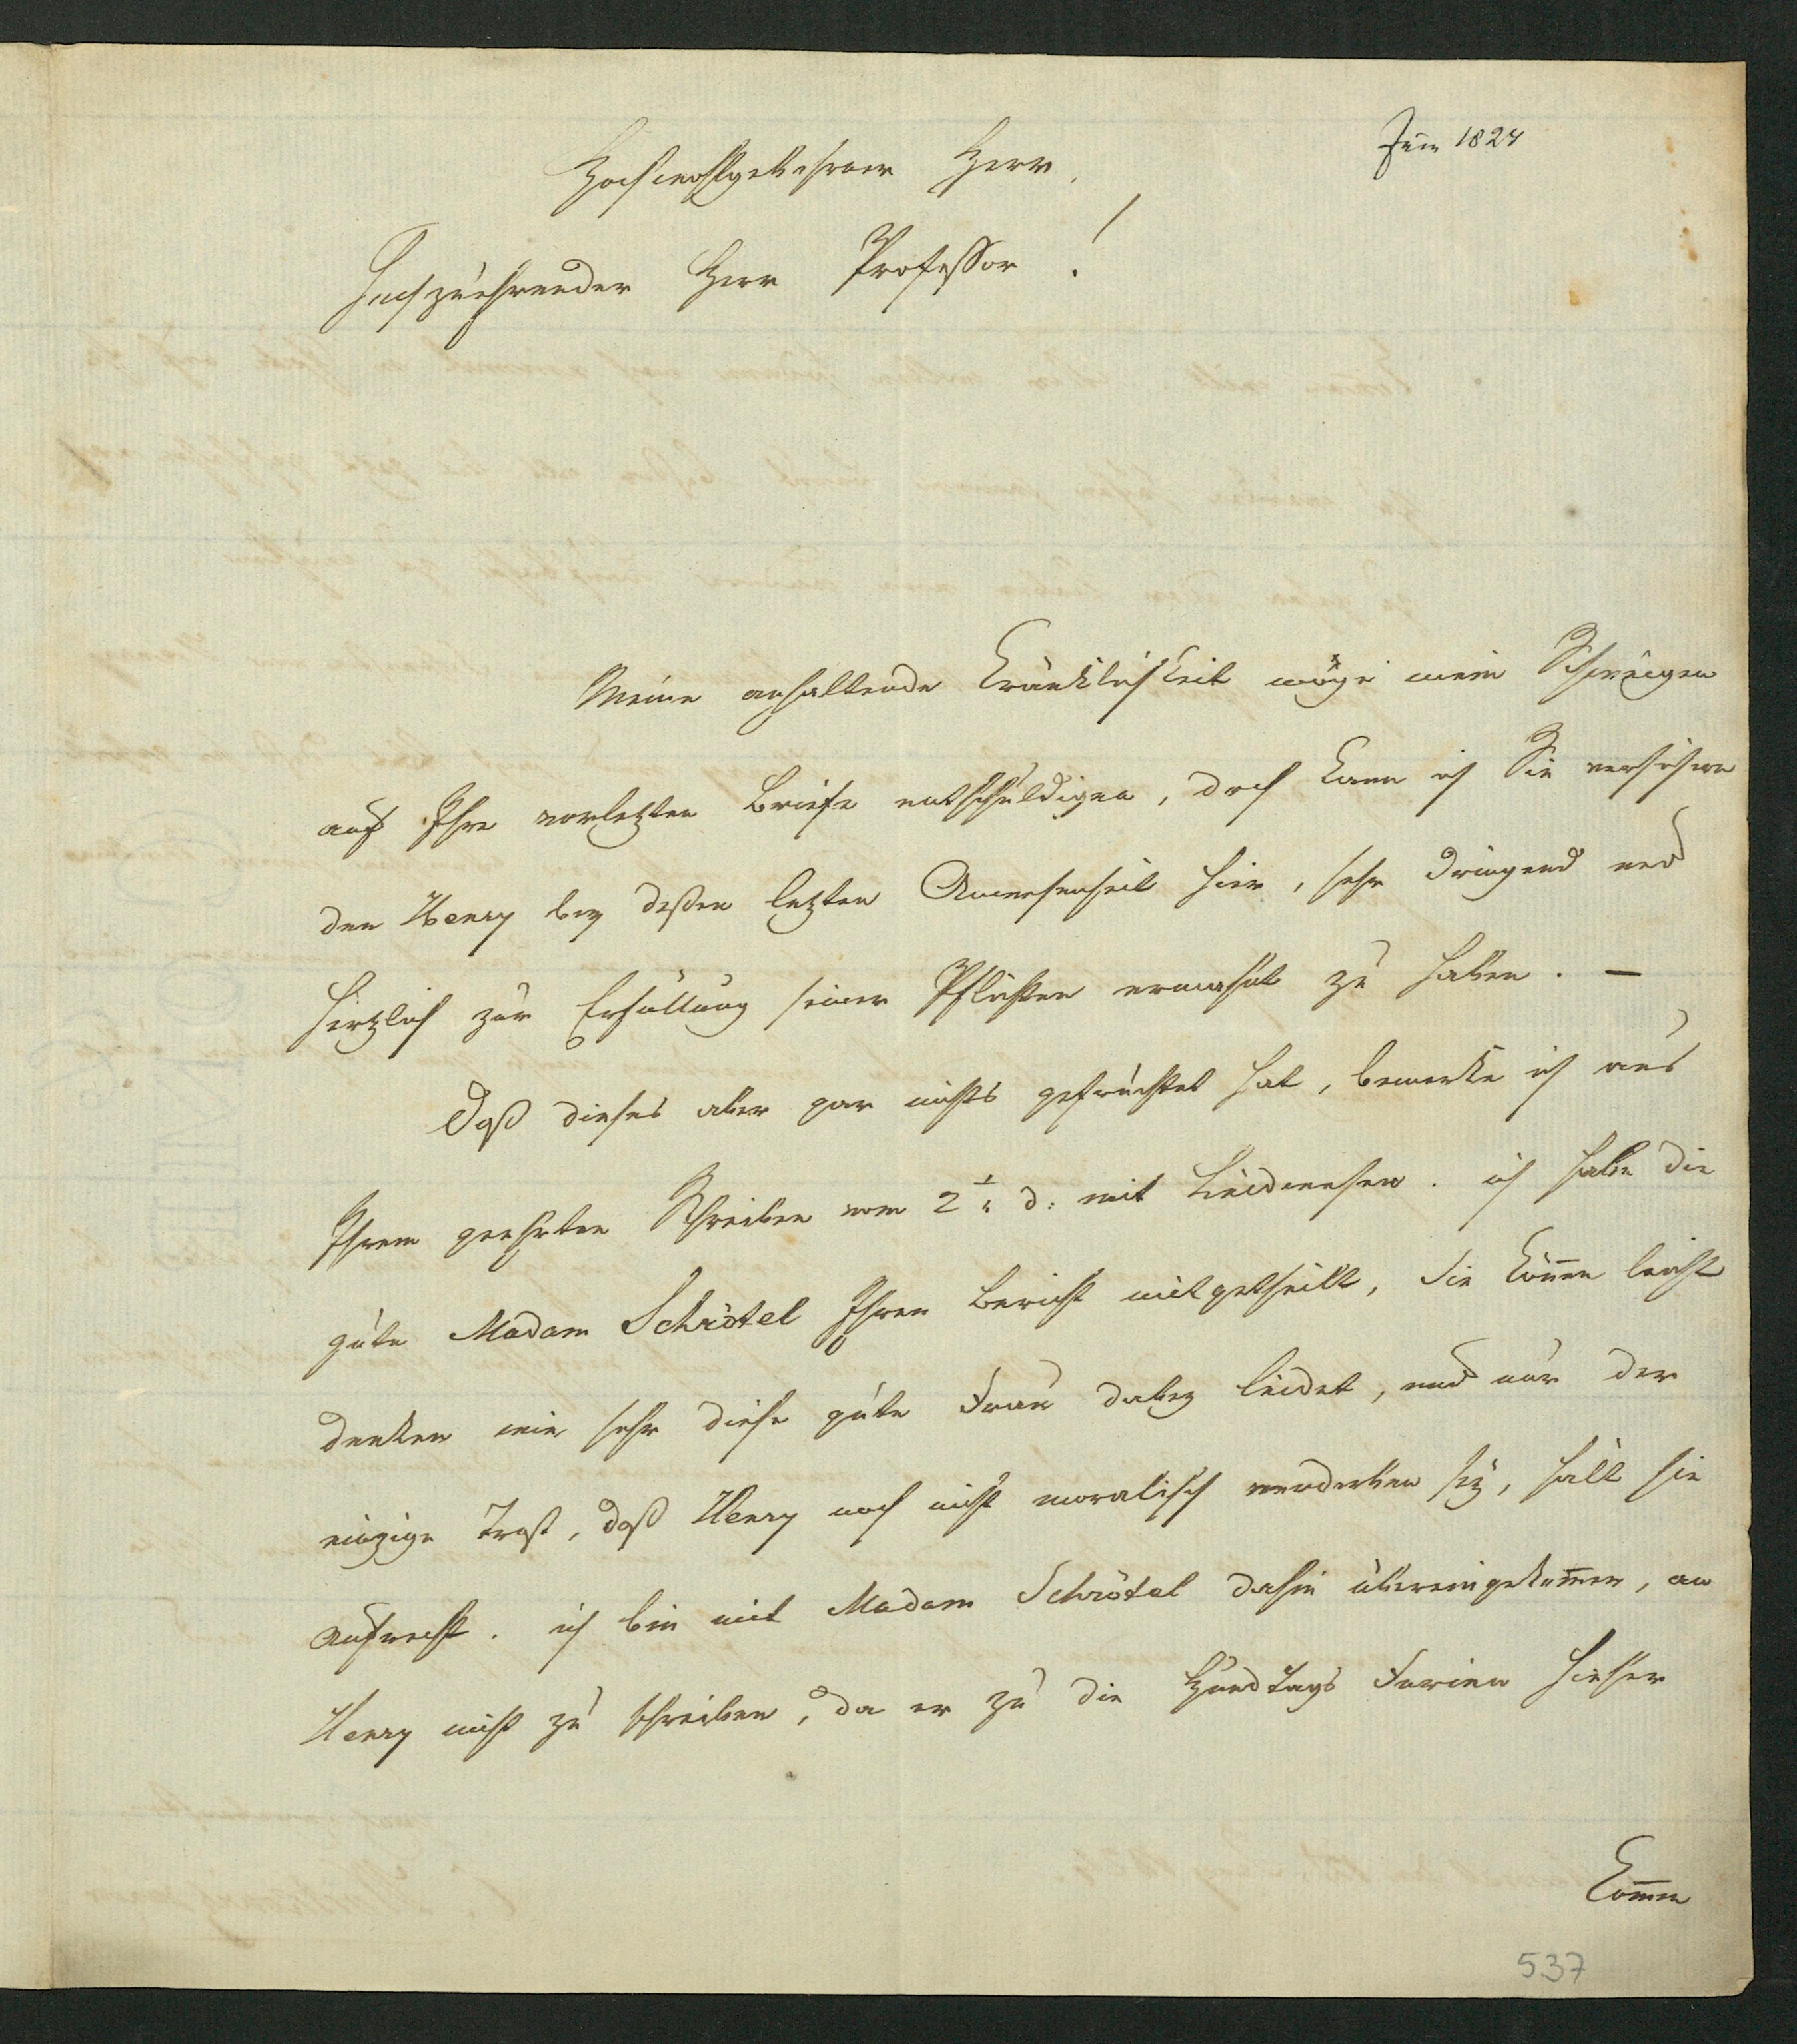 Juni 1824
Hochwohlgebohrner Herr,
Hochzuehrender Herr Professor!
Meine anhaltende Kränklichkeit möge mein Schweigen
auf Ihre vorletzten Briefe entschuldigen, doch kann ich Sie versichern
den Henry bey deßen letzten Anwesenheit hier, sehr dringend und
herzlich zur Erfüllung seiner Pflichten ermahnt zu haben. —
Daß dieses aber gar nichts gefruchtet hat, bemerke ich aus
Ihrem geehrten Schreiben vom 2 d: mit Leidwesen. ich habe die
gute Madam Schrötel Ihren Bericht mitgetheilt, Sie können leicht
denken wie sehr diese gute Frau dabey leidet, und nur der
einzige Trost, daß Henry noch nicht moralisch verdorben sey, hält sie
aufrecht. ich bin mit Madam Schrötel dahin übereingekommen, an
Henry nicht zu schreiben, da er zu die Hundtags Ferien hieher
kommen
537